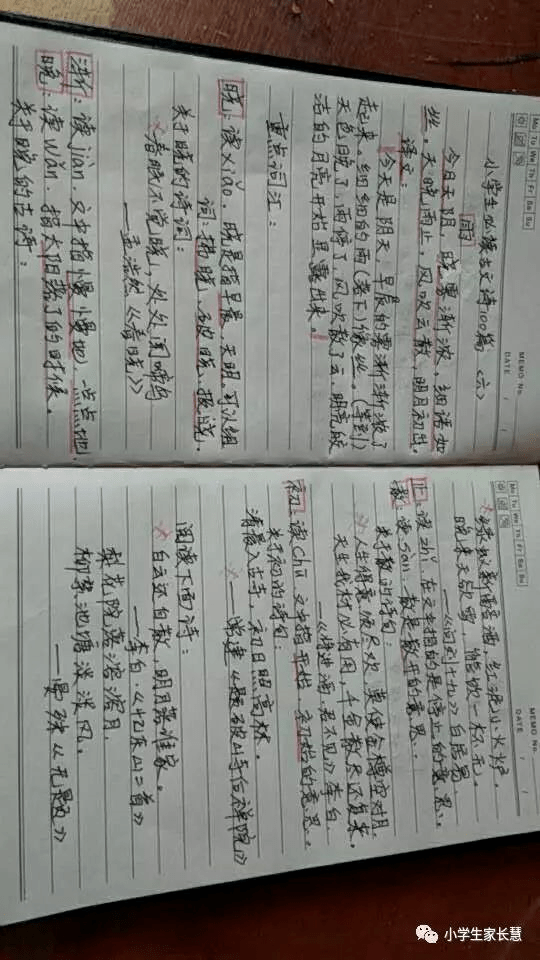 MEMO No.
DATE / /
Mo Tu We Th Fr Sa Su
小学生必读古文诗100篇（六）
雨
今日天阴，晓雾渐浓，细雨如
丝。天晚雨止，风吹云散，明月初出。
译文：
今天是阴天，早晨的雾渐渐浓了
起来，细细的雨（落下）像丝。（等到）
天色晚了，雨停了，风吹散了云，明亮皎
洁的月亮开始显露出来。
重点词汇：
晓：读xiǎo，晓是指早晨，天明。可以组
词：拂晓、破晓、报晓。
关于晓的诗词：
春眠不觉晓，处处闻啼鸟
——孟浩然《春晓》
渐：读jiàn，文中指慢慢地，一点点地
晚：读wǎn，指太阳落了的时候。
关于晚的古诗：
MEMO No.
DATE / /
Mo Tu We Th Fr Sa Su
绿蚁新醅酒，红泥小火炉。
晚来天欲雪，能饮一杯无。
——《问刘十九》白居易
止：读zhǐ，在文中指的是停止的意思。
散：读sàn，散是散开的意思。
关于散的诗句：
人生得意须尽欢，莫使金樽空对月。
天生我材必有用，千金散尽还复来。
——《将进酒·君不见》李白
初：读chū，文中指开始、初始的意思。
关于初的诗句：
清晨入古寺，初日照高林。
——常建《题破山寺后禅院》
阅读下面诗：
白云还自散，明月落谁家。
——李白《忆东山二首》
梨花院落溶溶月，
柳絮池塘淡淡风。
——晏殊《无题》
小学生家长慧